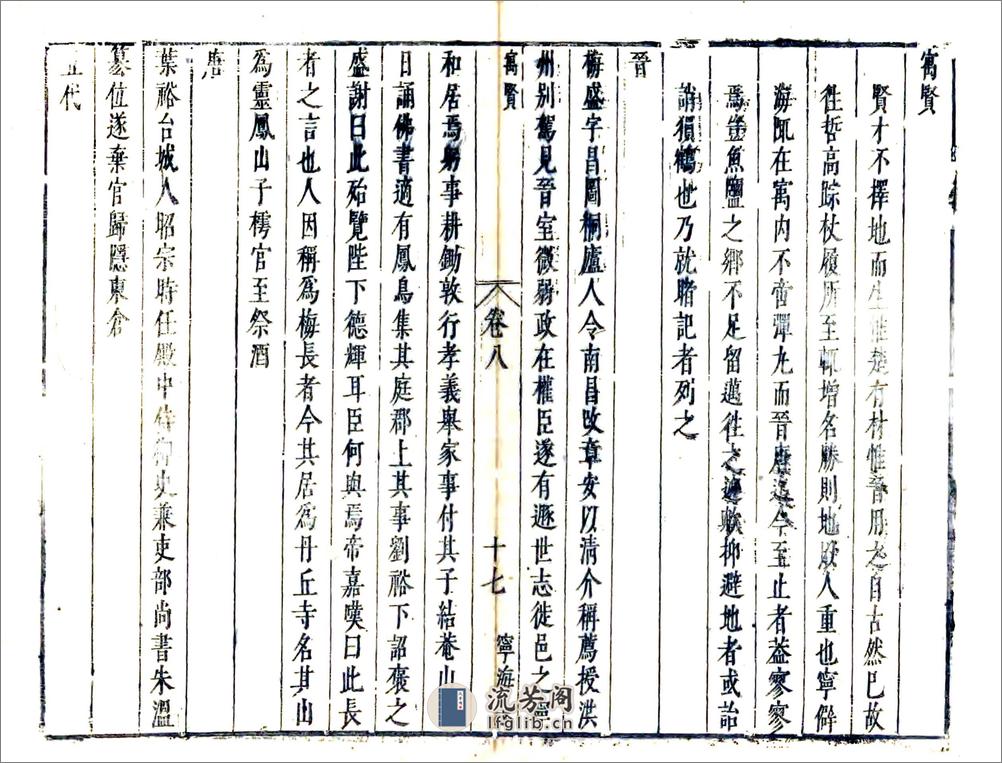 寓賢
賢才不擇地而生惟楚有材惟晉用之自古然已故
徃哲高踪杖履所至輒增名勝則地以人重也寧僻
海陬在寓内不啻彈丸而晉唐迄今至止者葢寥寥
焉豈魚鹽之鄉不足留邁徃之迹歟抑避地者或詒
誚猿鶴也乃就睹記者列之
晉
梅盛字昌圖桐廬人令南昌改章安以清介稱薦授洪
州别駕見晉室微弱政在權臣遂有遯世志徙邑之
寓賢
卷八
十七
寧海
和居焉躬事耕鋤敦行孝義舉家事付其子結菴山
日誦佛書適有鳳鳥集其庭郡上其事劉裕下詔褒之
盛謝曰此殆覽陛下德輝耳臣何與焉帝嘉嘆曰此長
者之言也人因稱爲梅長者今其居爲丹丘寺名其山
爲靈鳳山子樗官至祭酒
唐
葉裕台城人昭宗時任殿中侍御史兼吏部尚書朱溫
篡位遂棄官歸隱東倉
五代
流芳阁
lfglib.cn